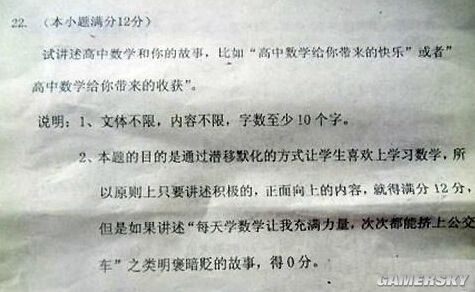 22. (本小题满分12分)
试讲述高中数学和你的故事,比如“高中数学给你带来的快乐”或者”
高中数学给你带来的收获”。
说明:1、文体不限,内容不限,字数至少10个字。
2、本题的目的是通过潜移默化的方式让学生喜欢上学习数学,所
以原则上只要讲述积极的,正面向上的内容,就得满分12分,
但是如果讲述“每天学数学让我充满力量,次次都能挤上公交
车”之类明褒暗贬的故事,得0分。
GAMERSKY